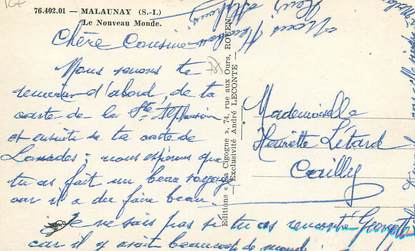 76.402.01 - MALAUNAY (S.-I.)
Le Nouveau Monde.
Chère Cousine
Nous venons te
remercier d'abord, de ta
carte de la Ste
et ensuite de ta carte de
Lourdes; nous espérons que
tu as fait un beau voyage
car il a du faire beau.
Je ne sais pas si tu as rencontré Georgette
car il y avait beaucoup de monde
Editions « La Cigogne », 74, rue aux Ours, ROUEN
Exclusivité André LECONTE
Mademoiselle
Henriette Létard
Cailly